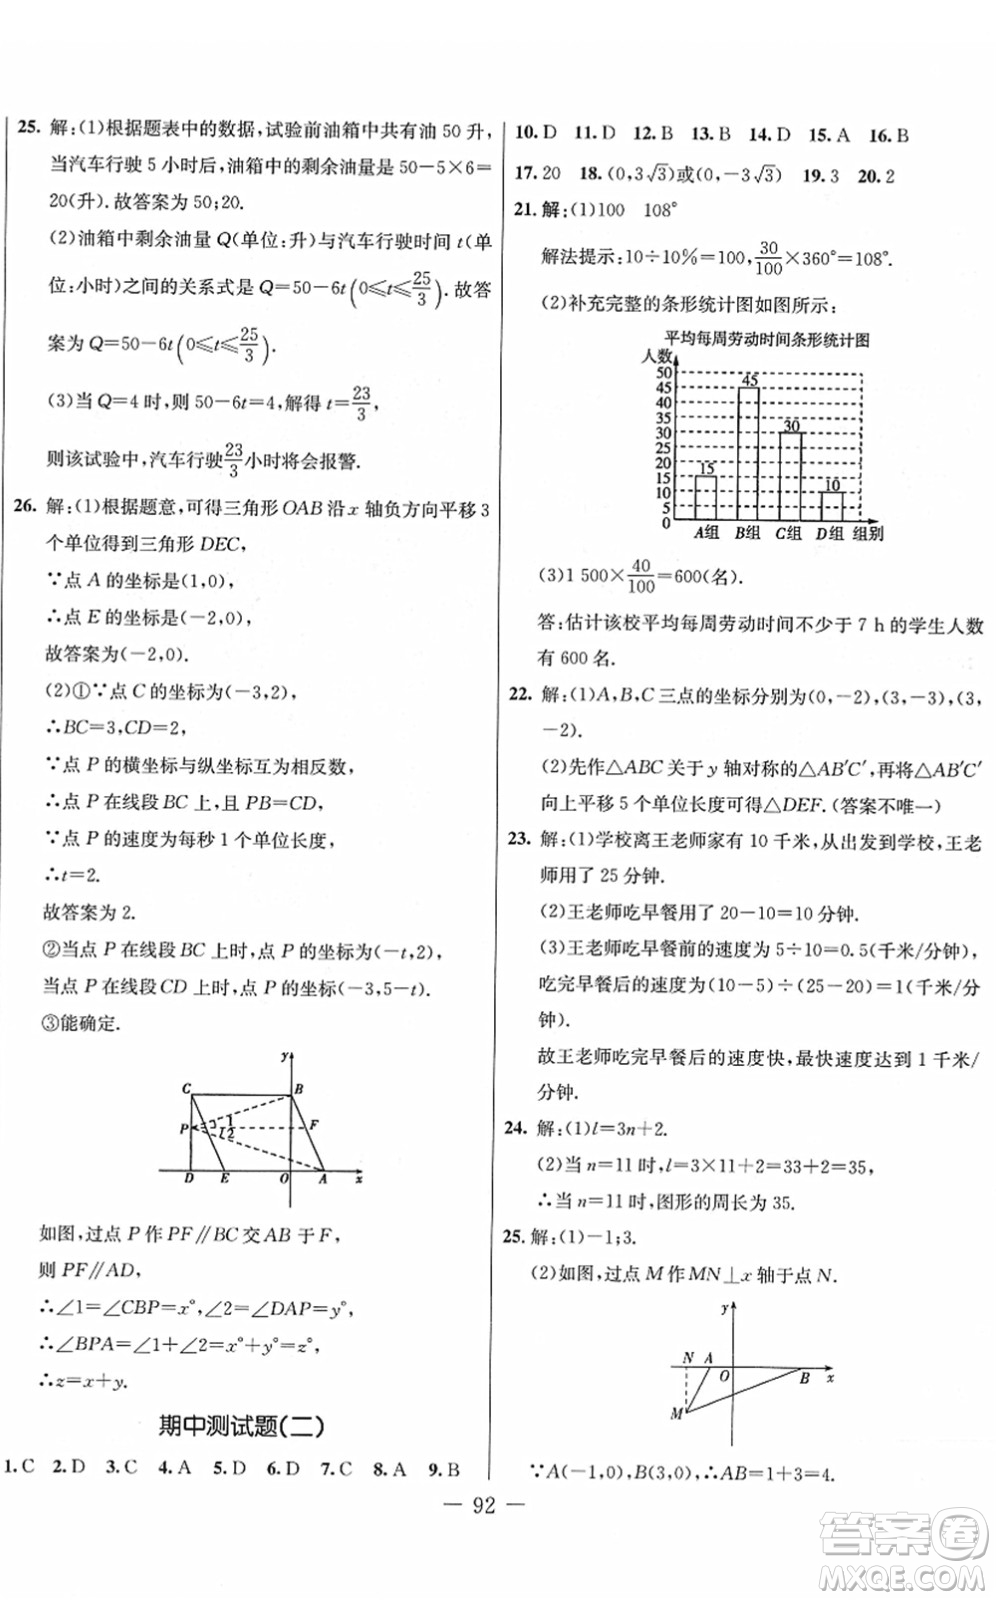 25. 解:(1)根据题表中的数据,试验前油箱中共有油 50 升,
当汽车行驶 5 小时后,油箱中的剩余油量是 50－5×6＝
20(升).故答案为 50;20.
(2)油箱中剩余油量 Q(单位:升)与汽车行驶时间 t(单
位:小时)之间的关系式是 Q＝50－6t(0≤t≤25/3).故答
案为 Q＝50－6t(0≤t≤25/3).
(3)当 Q＝4 时,则 50－6t＝4,解得 t＝23/3,
则该试验中,汽车行驶23/3小时将会报警.
26. 解:(1)根据题意,可得三角形 OAB 沿 x 轴负方向平移 3
个单位得到三角形 DEC,
∵点 A 的坐标是(1,0),
∴点 E 的坐标是(－2,0).
故答案为(－2,0).
(2)①∵点 C 的坐标为(－3,2),
∴BC＝3,CD＝2,
∵点 P 的横坐标与纵坐标互为相反数,
∴点 P 在线段 BC 上,且 PB＝CD,
∵点 P 的速度为每秒 1 个单位长度,
∴t＝2.
故答案为 2.
②当点 P 在线段 BC 上时,点 P 的坐标为(－t,2),
当点 P 在线段 CD 上时,点 P 的坐标(－3,5－t).
③能确定.
y
C B
P 1 F
2
D E O A x
如图,过点 P 作 PF∥BC 交 AB 于 F,
则 PF∥AD,
∴∠1＝∠CBP＝x°,∠2＝∠DAP＝y°,
∴∠BPA＝∠1＋∠2＝x°＋y°＝z°,
∴z＝x＋y.
期中测试题(二)
1. C 2. D 3. C 4. A 5. D 6. D 7. C 8. A 9. B
10. D 11. D 12. B 13. B 14. D 15. A 16. B
17. 20 18. (0,3√3)或(0,－3√3) 19. 3 20. 2
21. 解:(1)100 108°
解法提示:10÷10%＝100,30/100×360°＝108°.
(2)补充完整的条形统计图如图所示:
平均每周劳动时间条形统计图
人数
50
45 45
40
35
30 30
25
20
15 15
10 10
5
0
A组 B组 C组 D组 组别
(3)1 500×40/100＝600(名).
答:估计该校平均每周劳动时间不少于 7 h 的学生人数
有 600 名.
22. 解:(1)A,B,C 三点的坐标分别为(0,－2),(3,－3),(3,
－2).
(2)先作△ABC 关于 y 轴对称的△AB′C′,再将△AB′C′
向上平移 5 个单位长度可得△DEF.(答案不唯一)
23. 解:(1)学校离王老师家有 10 千米,从出发到学校,王老
师用了 25 分钟.
(2)王老师吃早餐用了 20－10＝10 分钟.
(3)王老师吃早餐前的速度为 5÷10＝0.5(千米/分钟),
吃完早餐后的速度为(10－5)÷(25－20)＝1(千米/分
钟).
故王老师吃完早餐后的速度快,最快速度达到 1 千米/
分钟.
24. 解:(1)l＝3n＋2.
(2)当 n＝11 时,l＝3×11＋2＝33＋2＝35,
∴当 n＝11 时,图形的周长为 35.
25. 解:(1)－1;3.
(2)如图,过点 M 作 MN⊥x 轴于点 N.
y
N A O B x
M
∵A(－1,0),B(3,0),∴AB＝1＋3＝4.
— 92 —
答案卷
MXQE.COM